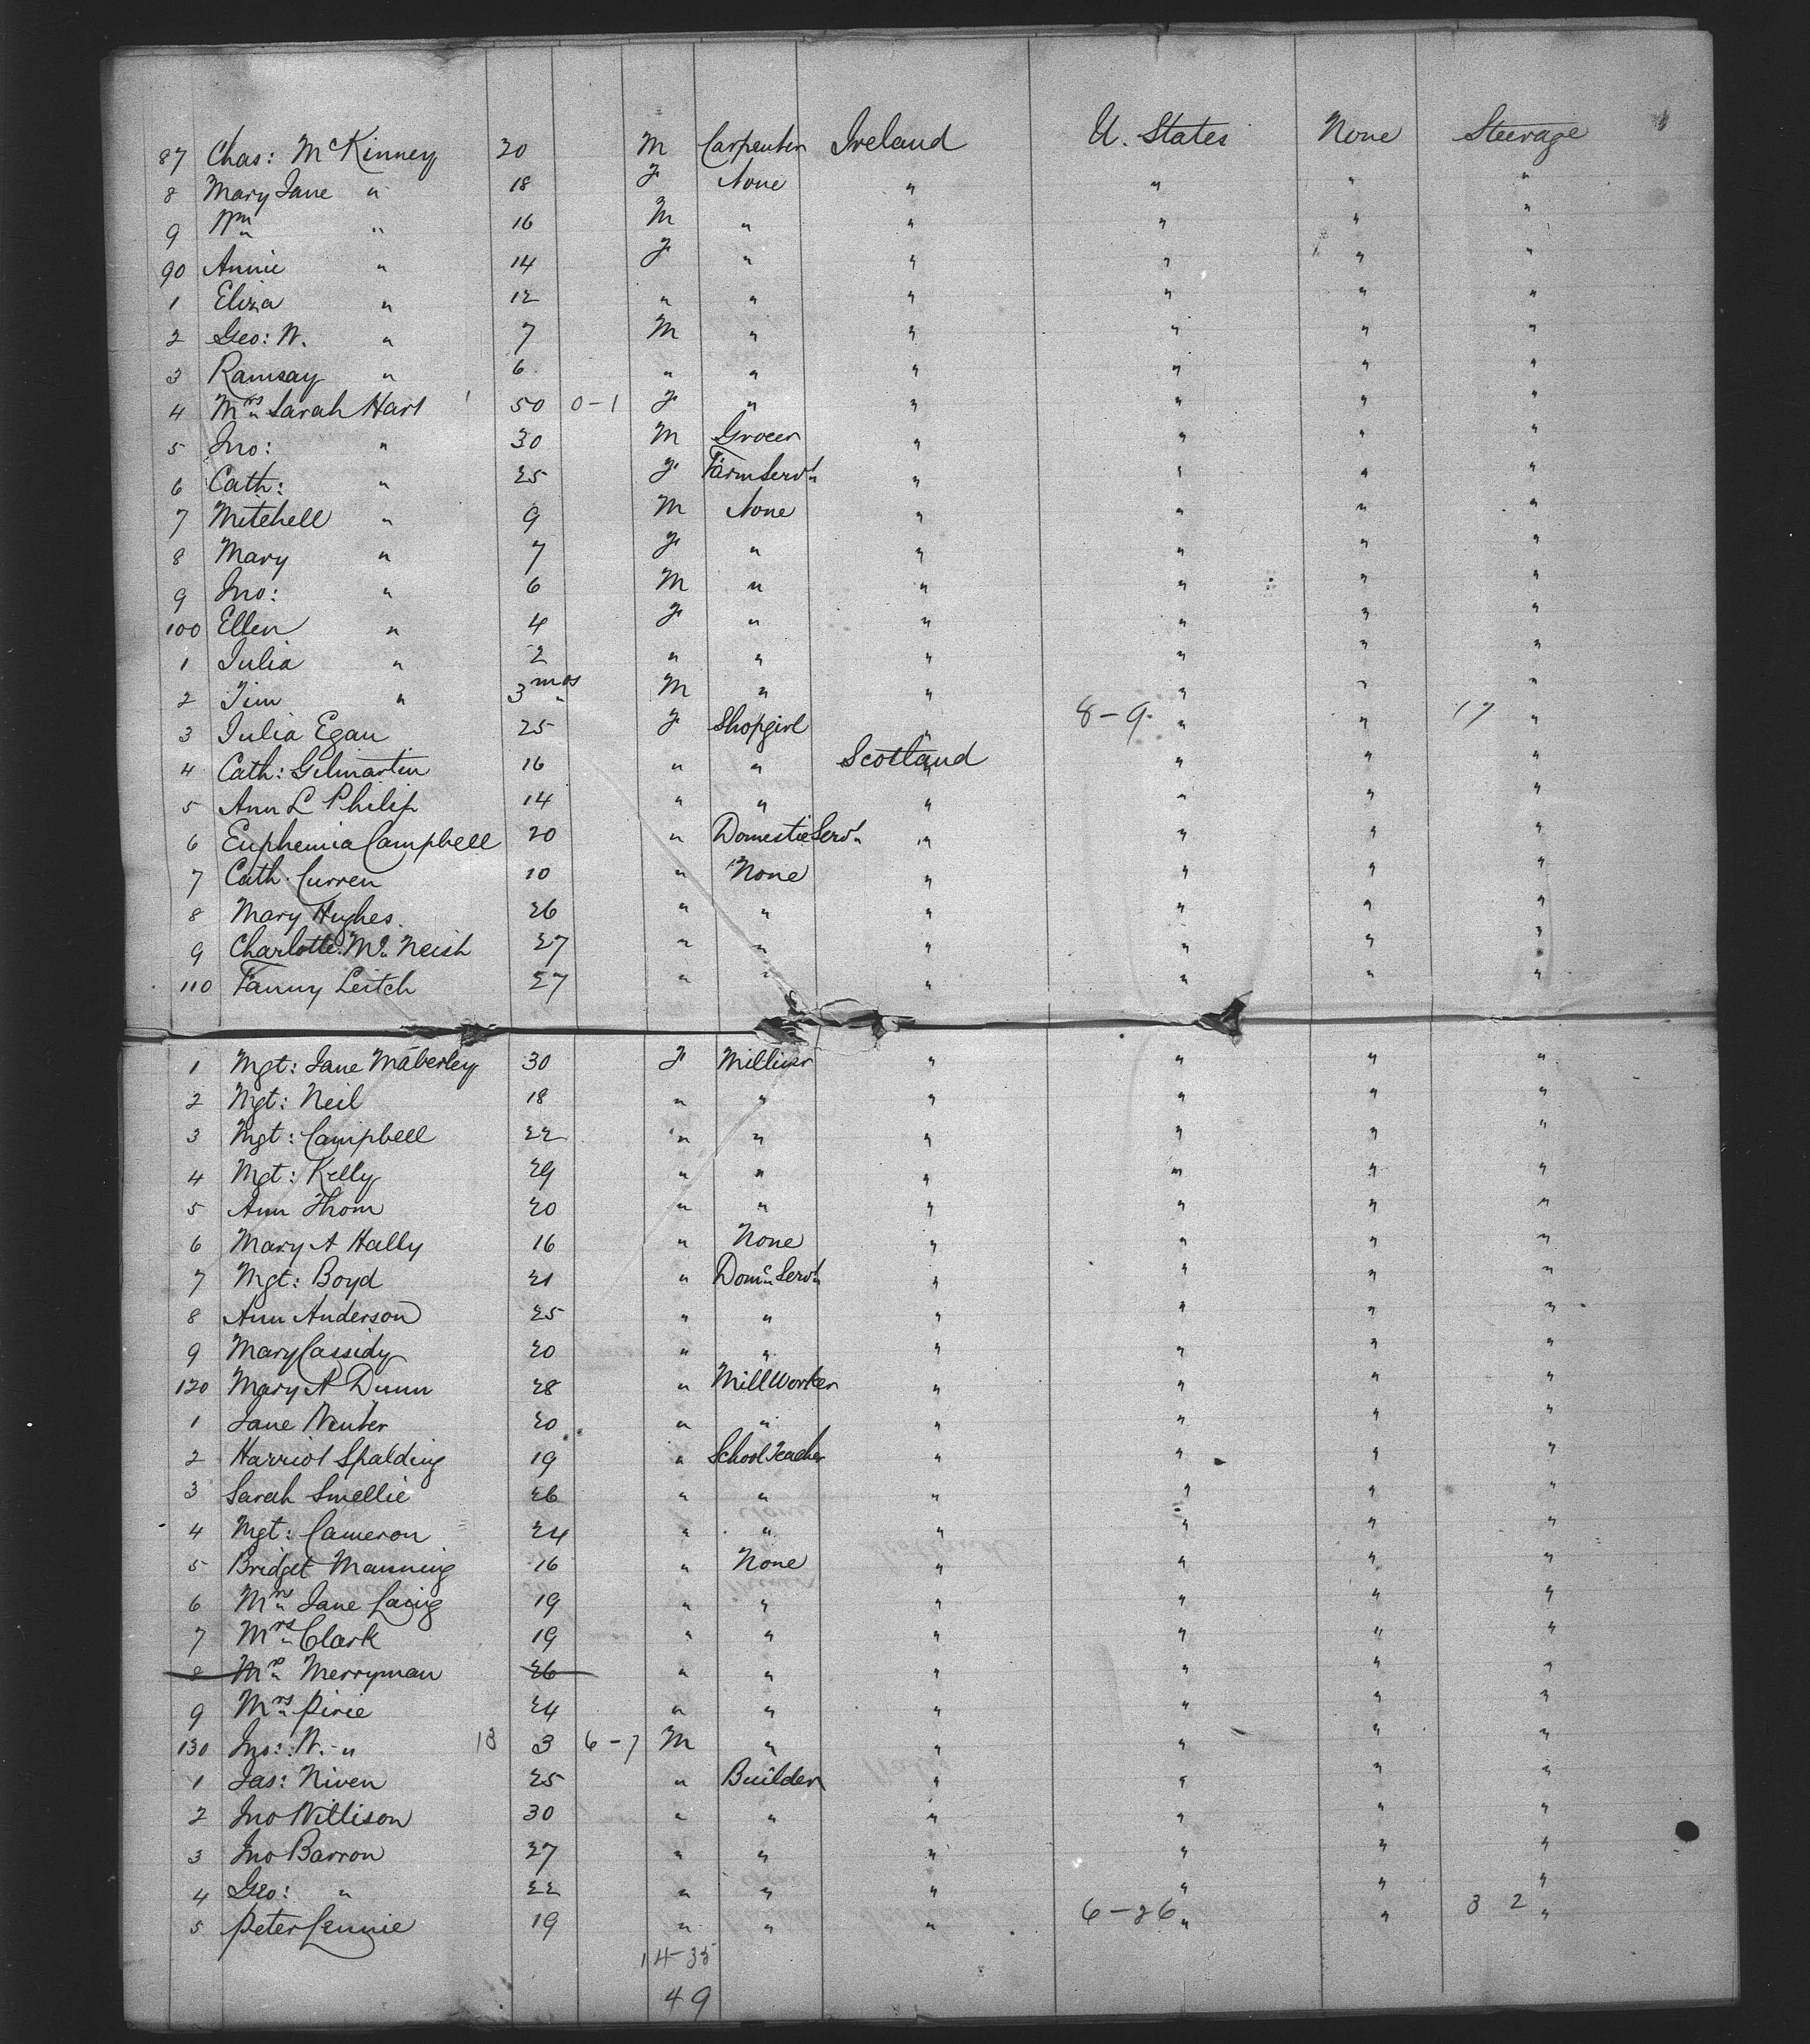 87 Chas: McKinney 20 M Carpenter Ireland U. States None Steerage
8 Mary Jane " 18 F None " " " "
9 Wm " 16 M " " " " "
90 Annie " 14 F " " " " "
1 Eliza " 12 " " " " " "
2 Geo: W. " 7 M " " " " "
3 Ramsay " 6 " " " " " "
4 Mrs Sarah Hart 50 0-1 F " " " " "
5 Jno: " 30 M Grocer " " " "
6 Cath: " 25 F Farm Servt " " " "
7 Mitchell " 9 M None " " " "
8 Mary " 7 F " " " " "
9 Jno: " 6 M " " " " "
100 Ellen " 4 F " " " " "
1 Julia " 2 " " " " " "
2 Tim " 3 mos M " " " " "
3 Julia Egan 25 F Shopgirl " 8-9 " " 17 "
4 Cath: Gilmartin 16 " " Scotland " " "
5 Ann L Philip 14 " " " " " "
6 Euphemia Campbell 20 " Domestic Servt " " " "
7 Cath. Curren 10 " None " " " "
8 Mary Hughes 26 " " " " " "
9 Charlotte Mc Neish 27 " " " " " "
110 Fanny Leitch 27 " " " " " "
1 Mgt: Jane Maberley 30 F Milliner " " " "
2 Mgt: Neil 18 " " " " " "
3 Mgt: Campbell 22 " " " " " "
4 Mgt: Kelly 29 " " " " " "
5 Ann Thom 20 " " " " " "
6 Mary A Hally 16 " None " " " "
7 Mgt: Boyd 21 " Domc Servt " " " "
8 Ann Anderson 25 " " " " " "
9 Mary Cassidy 20 " " " " " "
120 Mary A Dunn 28 " Mill Worker " " " "
1 Jane 20 " " " " " "
2 Harriot Spalding 19 " School Teacher " " " "
3 Sarah Smellie 26 " " " " " "
4 Mgt: Cameron 24 " " " " " "
5 Bridget Manning 16 " None " " " "
6 Mrs Jane Laing 19 " " " " " "
7 Mrs Clark 19 " " " " " "
8 Mrs Merryman 26 " " " " " "
9 Mrs Pirie 24 " " " " " "
130 Jno: W. " 13 3 6-7 M " " " " "
1 Jas: Niven 25 " Builder " " " "
2 Jno Willison 30 " " " " " "
3 Jno Barron 27 " " " " " "
4 Geo: " 22 " " " " " "
5 Peter Lennie 19 " " " 6-26 " " 32 "
14-35
49